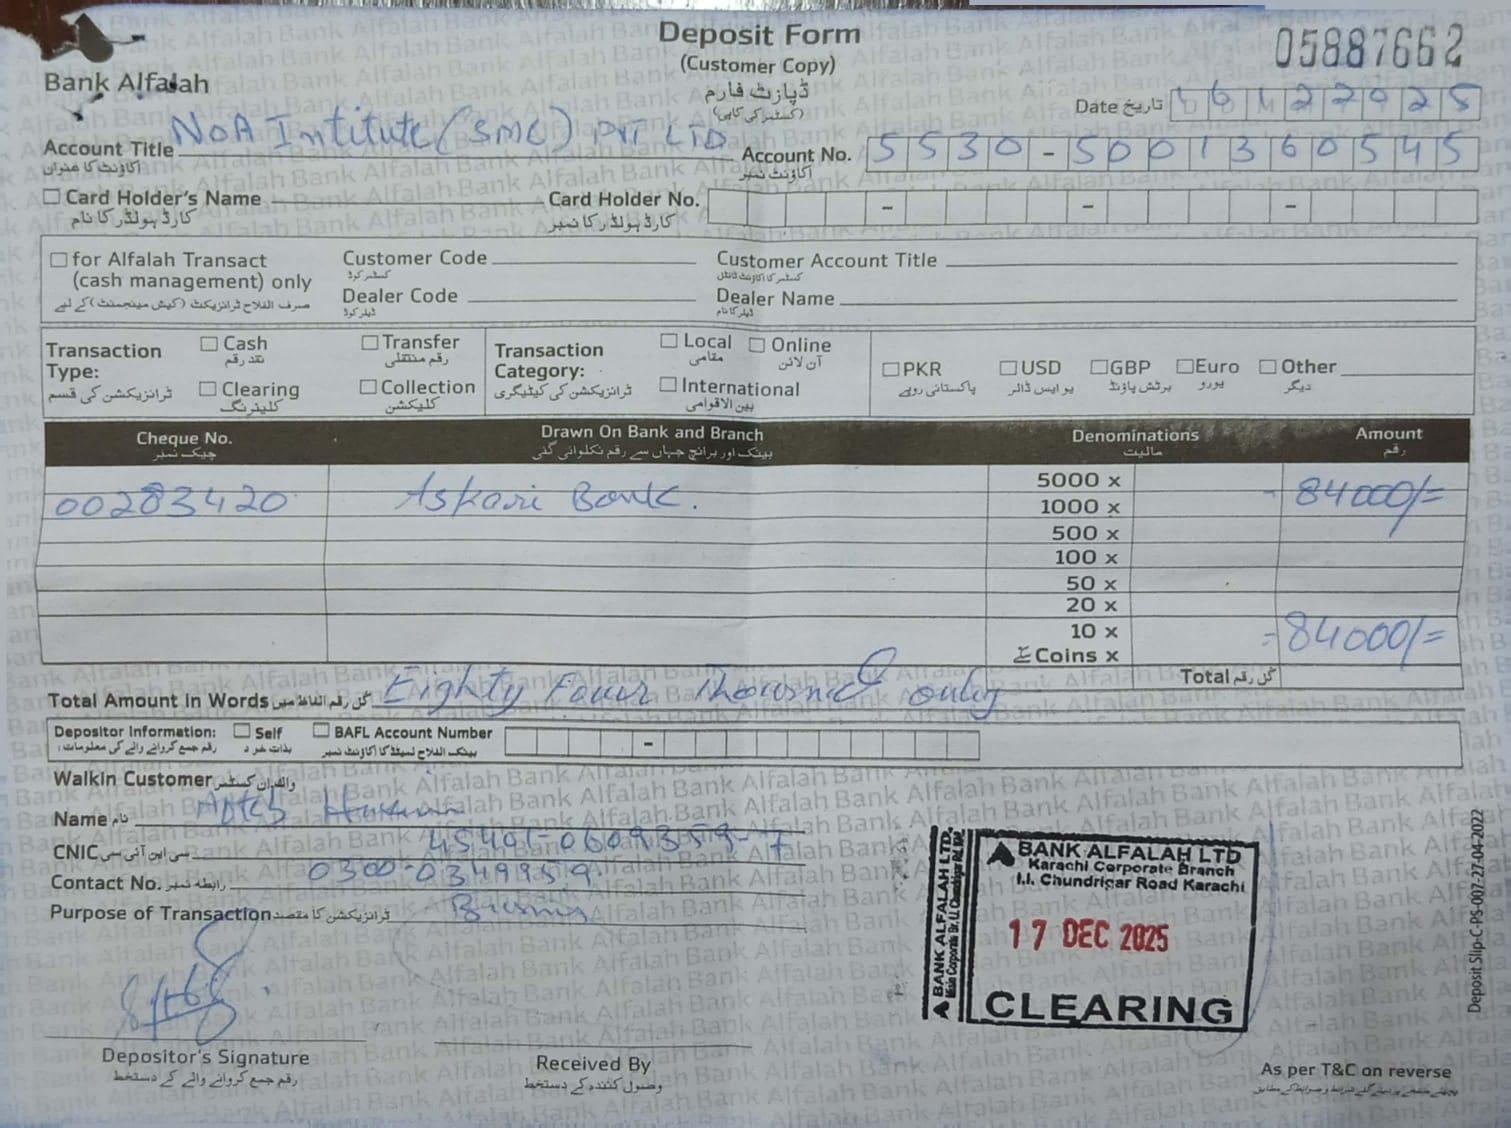 Deposit Form
(Customer Copy)
ڈپازٹ فارم
(کسٹمر کی کاپی)
05887662
Bank Alfalah
Date تاریخ
Account Title NOA Institute (SMC) PVT LTD
اکاؤنٹ کا عنوان
Account No. 5530-5001360545
اکاؤنٹ نمبر
☐ Card Holder's Name
کارڈ ہولڈر کا نام
Card Holder No.
کارڈ ہولڈر کا نمبر
☐ for Alfalah Transact
(cash management) only
صرف الفلاح ٹرانزیکٹ (کیش مینجمنٹ) کے لیے
Customer Code
کسٹمر کوڈ
Customer Account Title
کسٹمر کا اکاؤنٹ ٹائٹل
Dealer Code
ڈیلر کوڈ
Dealer Name
ڈیلر کا نام
Transaction Type:
ٹرانزیکشن کی قسم
☐ Cash
نقد رقم
☐ Transfer
رقم منتقلی
☐ Clearing
کلیئرنگ
☐ Collection
کلیکشن
Transaction Category:
ٹرانزیکشن کی کیٹیگری
☐ Local
مقامی
☐ Online
آن لائن
☐ International
بین الاقوامی
☐ PKR
پاکستانی روپے
☐ USD
یو ایس ڈالر
☐ GBP
برٹش پاؤنڈ
☐ Euro
یورو
☐ Other
دیگر
Cheque No.
چیک نمبر
Drawn On Bank and Branch
بینک اور برانچ جہاں سے رقم نکلوائی گئی
Denominations
مالیت
Amount
رقم
00283420 Askari Bank. 84000/=
5000 x
1000 x
500 x
100 x
50 x
20 x
10 x
Coins x
84000/=
Total کُل رقم
Total Amount In Words کُل رقم الفاظ میں Eighty Four Thousand only
Depositor Information:
رقم جمع کروانے والے کی معلومات:
☐ Self
بذات خود
☐ BAFL Account Number
بینک الفلاح لمیٹڈ کا اکاؤنٹ نمبر
WalkIn Customer واک ان کسٹمر
Name نام
CNIC سی این آئی سی 45401-0609359-7
Contact No. رابطہ نمبر 0300-0349959
Purpose of Transaction ٹرانزیکشن کا مقصد
BANK ALFALAH LTD.
BANK ALFALAH LTD
Karachi Corporate Branch
I.I. Chundrigar Road Karachi
17 DEC 2025
CLEARING
Depositor's Signature
رقم جمع کروانے والے کے دستخط
Received By
وصول کنندہ کے دستخط
As per T&C on reverse
Deposit Slip-C-PS-007-27-04-2022